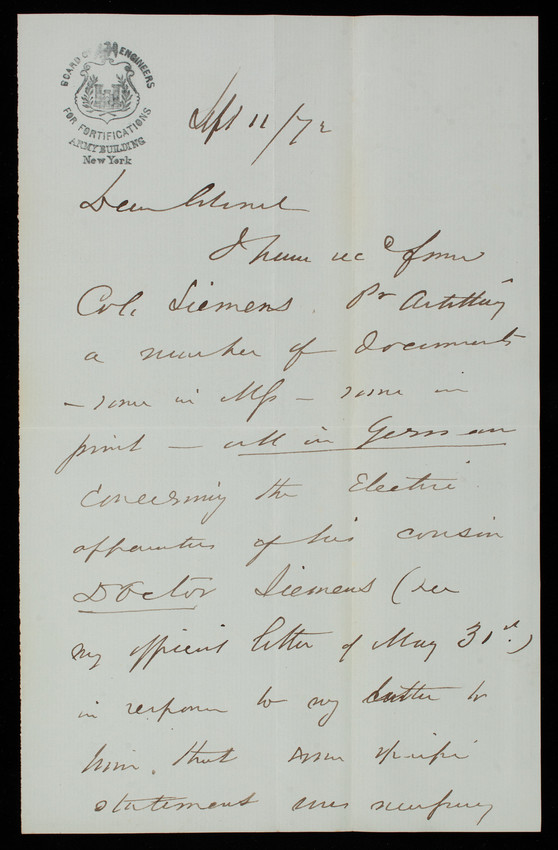 BOARD OF ENGINEERS
FOR FORTIFICATIONS
ARMY BUILDING
New York
Sept 11/72
Dear Colonel
I have recd from
Col. Siemens, Pr Artillery
a number of documents
– some in Mss – some in
print – all in German
concerning the Electric
apparatus of his cousin
Doctor Siemens (see
my official letter of May 31st.)
in response to my letter to
him, that some specific
statement was necessary